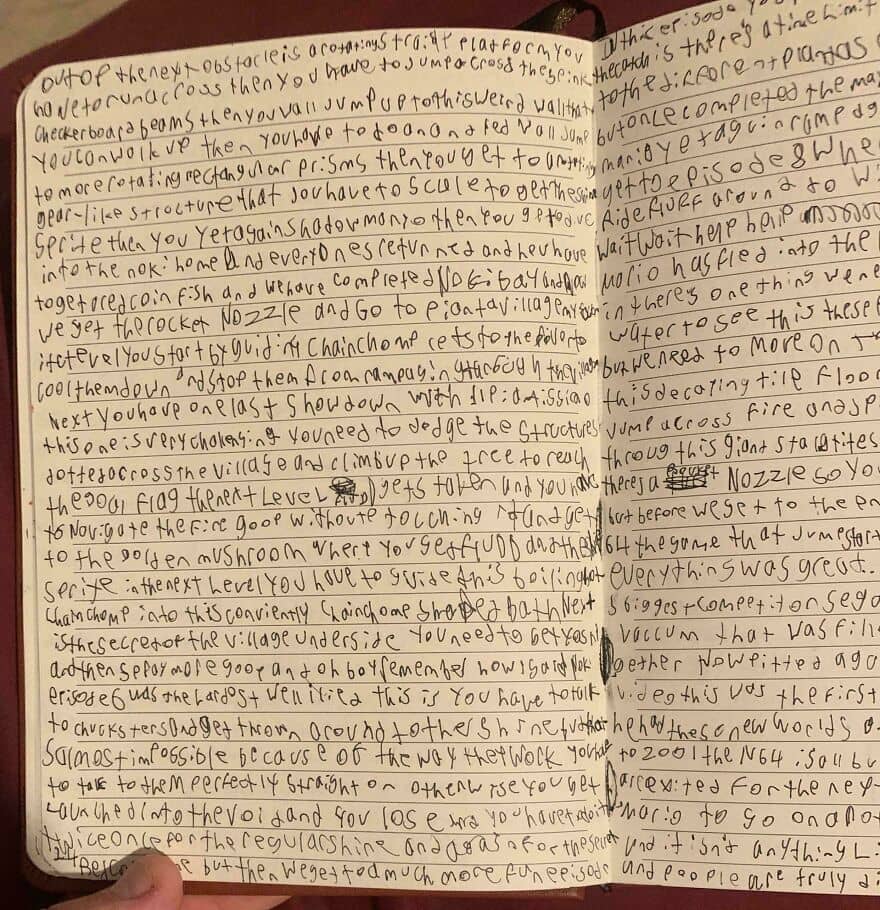 out of the next obstacle is a rotating straight platform you
have to run across then you have to jump across these pink
checkerboard beams then you wall jump up to this weird wall that
you can walk up then you have to do an
to more rotating rectangular prisms then you get to
gear-like structure that you have to scale to get the shine
Sprite then you yet again shadow mario then you get to dive
into the noki home and everyone's returned and
to get ored coin fish and we have completed Noki bay and now
we get the rocket Nozzle and Go to pianta village
level you start by guiding chain chomp
cool them down and stop them from rampaging through the village
Next you have one last showdown with
this one is very challenging you need to dodge the structures
dotted across the village and climb up the tree to reach
the goal flag the next Level gets taken and you have
to Navigate the fire goop without touching it and get
to the golden mushroom where you get FLUDD and the
Sprite in the next Level you have to guide this boiling hot
chain chomp into this conviently chain chomp shaped bath Next
is the secret of the village underside you need to
and then spray more goop and oh boy remember how I said Noki
episode 6 was the hardest well I lied this is you have to talk
to chucksters and get thrown around to other shrine but that
S almost impossible because of the way they work you have
to talk to them perfectly straight on otherwise you get
Launched into the void and you lose and you have to do it
twice once for the regular shine and again for the secret
but then we get to a much more fun episode
In this episode
the catch is there's a time limit
to the different piantas
but once completed the
mario yet again rampag
get to episode 8 whe
Ride FLUFF around to
wait wait here here
mario has fled into the
in there's one thing we ne
water to see this these
but we need to More on
this decaying tile floor
Jump across fire and sp
throug this giant stalatites
theres a Nozzle so you
but before we get to the en
64 the game that Jumpstart
everything was great.
s biggest competitor sega
vaccum that was fill
gether Now pitted aga
video this was the first
he had these new worlds
to 2001 the N64 is all bu
are excited for the nex
mario to go on ano
and it isn't anything Li
and people are truly di